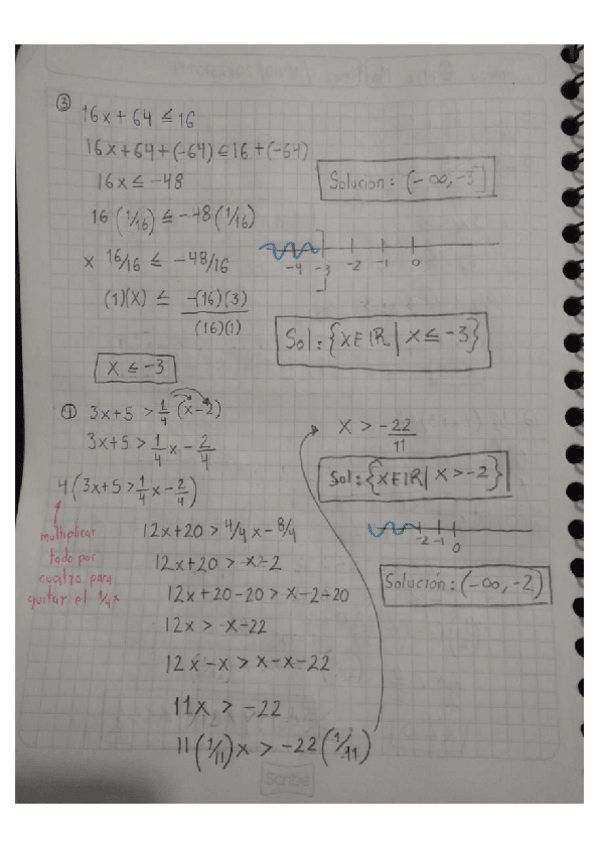 ③
16x + 64 ≤ 16
16x + 64 + (-64) ≤ 16 + (-64)
16x ≤ -48
16 (1/16) ≤ -48 (1/16)
x 16/16 ≤ -48/16
(1)(x) ≤ -(16)(3)
(16)(1)
x ≤ -3
Solucion: (-∞, -3]
-4 -3 -2 -1 0
Sol: {XEIR | X ≤ -3}
④ 3x+5 > 1/4 (x-2)
3x+5 > 1/4 x - 2/4
4 (3x+5 > 1/4 x - 2/4)
multiplicar
todo por
cuatro para
quitar el 1/4 x
12x+20 > 4/4 x - 8/4
12x+20 > x-2
12x+20-20 > x-2-20
12x > x-22
12x -x > x-x-22
11x > -22
11 (1/11) x > -22 (1/11)
x > -22
11
Sol: {XEIR | X > -2}
-2 -1 0
Solución: (-∞, -2)
Scribe